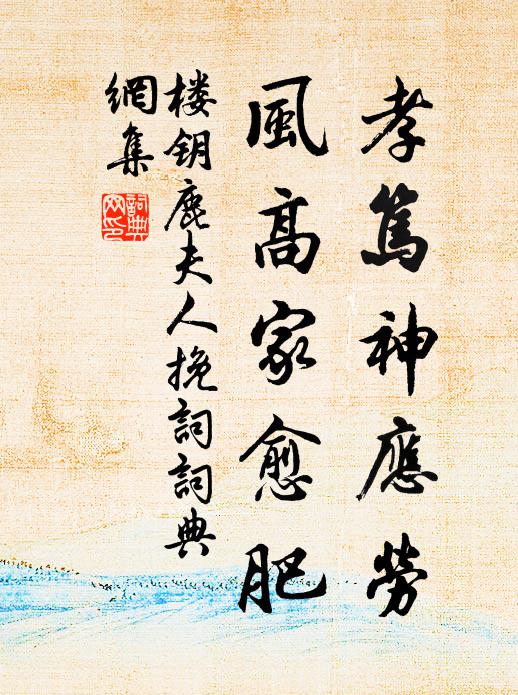 孝篤神應勞
風高家愈肥
楼钥鹿夫人挽詞詞典
網集
詞典
网印